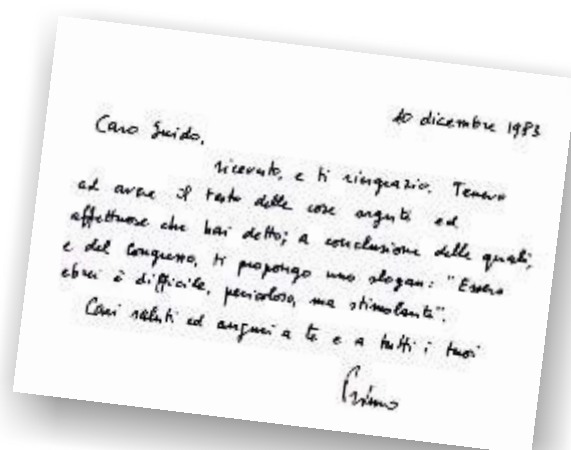 10 dicembre 1983
Caro Guido,
ricevuto, e ti ringrazio. Tenevo
ad avere il testo delle cose argute ed
affettuose che hai detto; a conclusione delle quali,
e del Congresso, ti propongo uno slogan: "Essere
ebrei è difficile, pericoloso, ma stimolante".
Cari saluti ed auguri a te e a tutti i tuoi
Primo